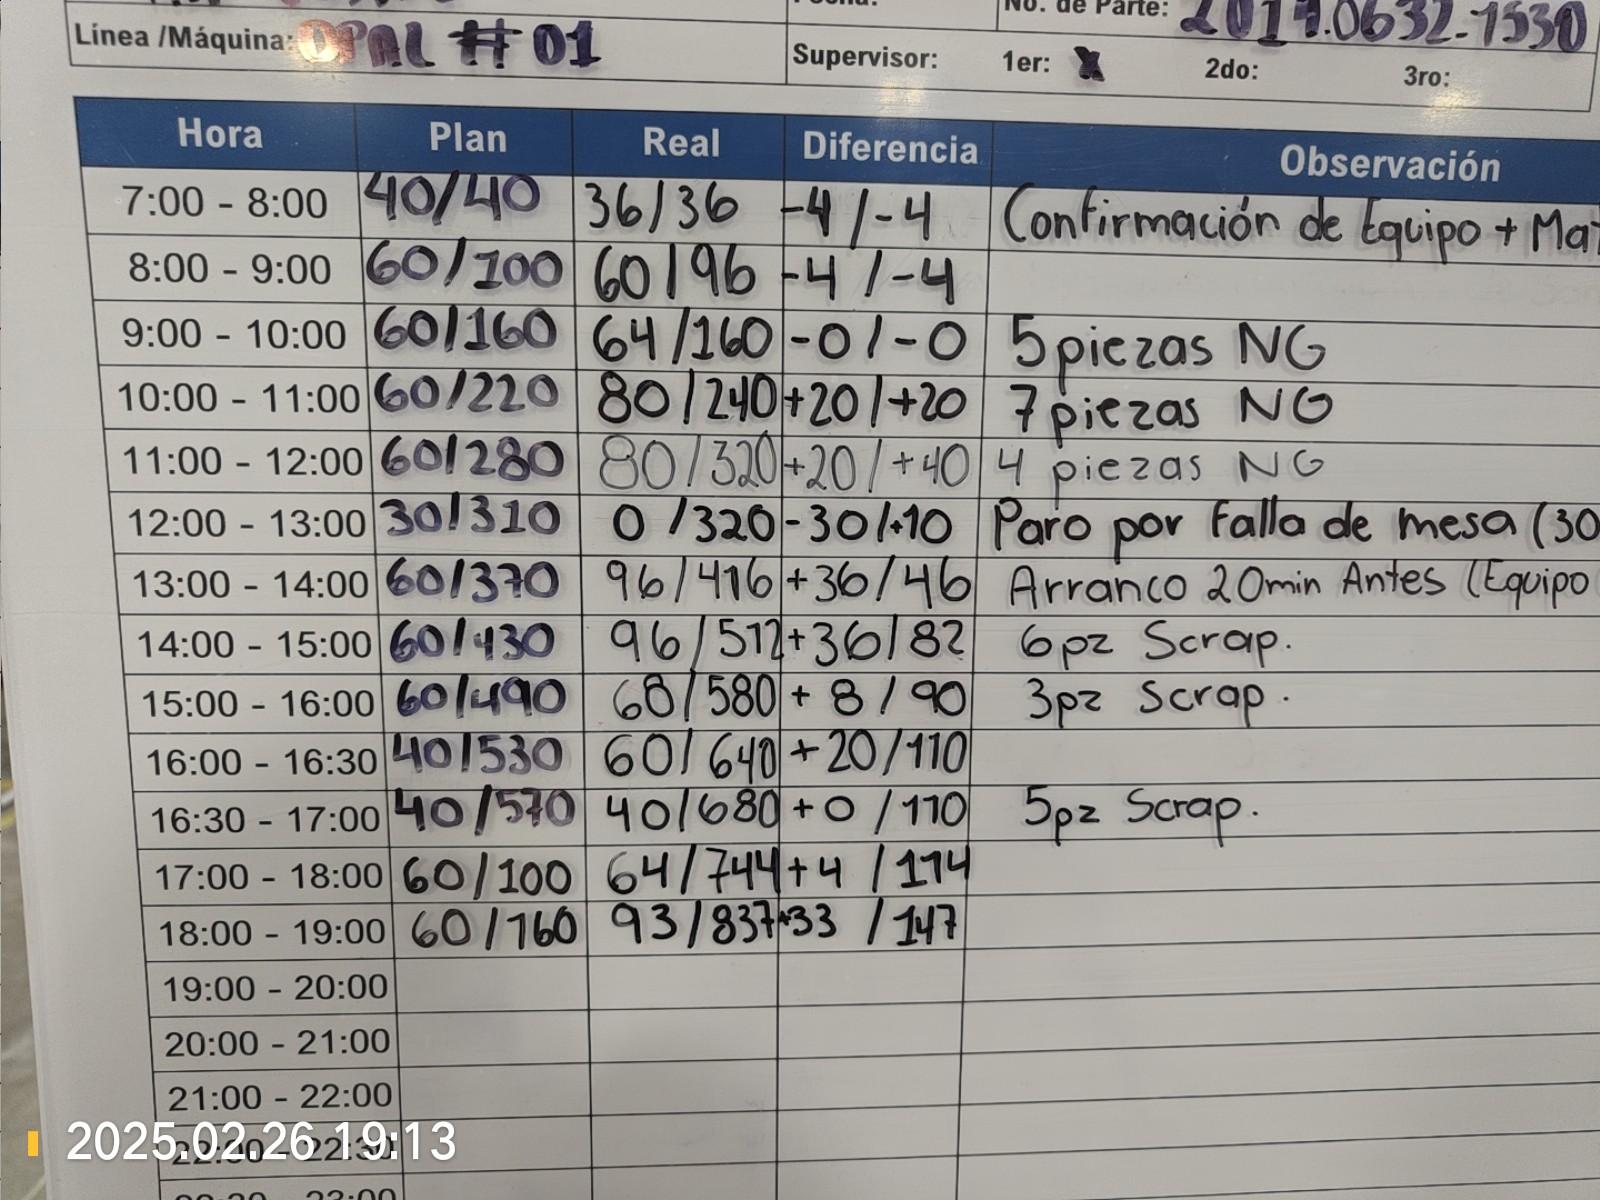 No. de Parte: 2017.0632-1530
Línea /Máquina: OPAL # 01
Supervisor: 1er: X 2do: 3ro:
Hora Plan Real Diferencia Observación
7:00 - 8:00 40/40 36/36 -4/-4 Confirmación de Equipo + Mat
8:00 - 9:00 60/100 60/96 -4/-4
9:00 - 10:00 60/160 64/160 -0/-0 5 piezas NG
10:00 - 11:00 60/220 80/240 +20/+20 7 piezas NG
11:00 - 12:00 60/280 80/320 +20/+40 4 piezas NG
12:00 - 13:00 30/310 0/320 -30/+10 Paro por Falla de mesa (30
13:00 - 14:00 60/370 96/416 +36/46 Arranco 20min Antes (Equipo
14:00 - 15:00 60/430 96/512 +36/82 6pz Scrap.
15:00 - 16:00 60/490 68/580 +8/90 3pz Scrap.
16:00 - 16:30 40/530 60/640 +20/110
16:30 - 17:00 40/570 40/680 +0/110 5pz Scrap.
17:00 - 18:00 60/100 64/744 +4/114
18:00 - 19:00 60/160 93/837 +33/147
19:00 - 20:00
20:00 - 21:00
21:00 - 22:00
22:00 - 22:30
2025.02.26 19:13